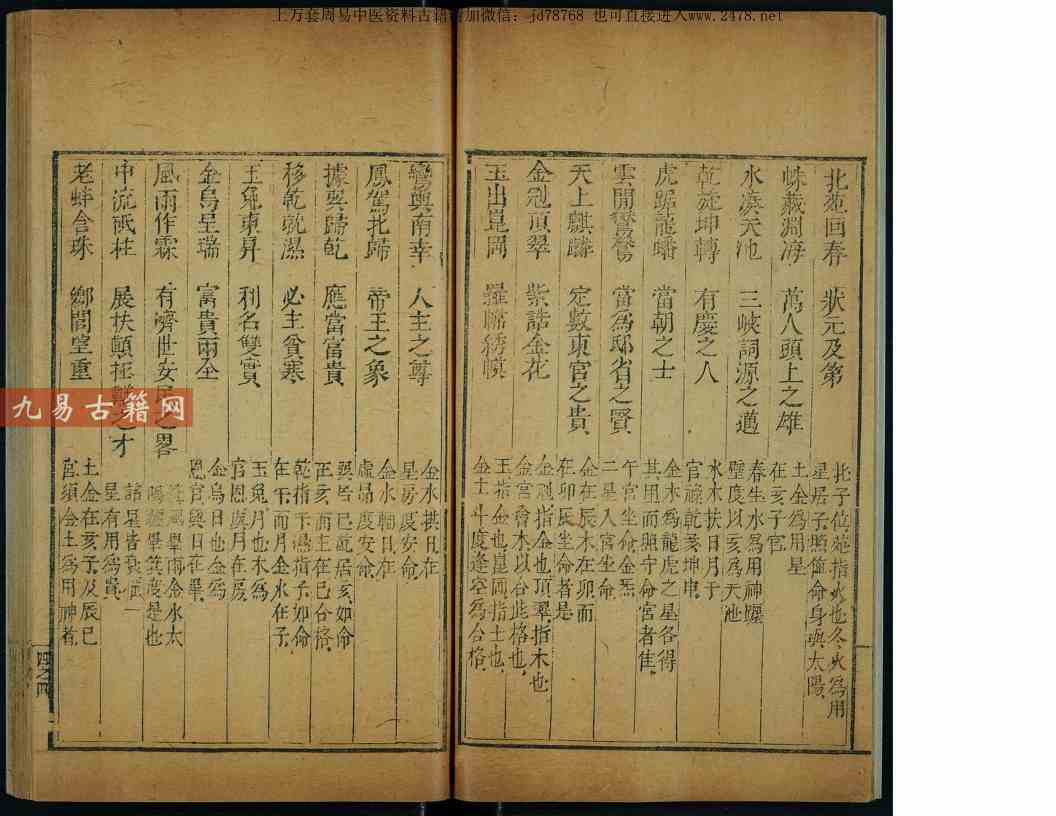 上万套周易中医资料古籍请加微信：jd78768 也可直接进入www.2478.net
北苑回春 狀元及第 北子位苑指火也冬火為用星居子照命身與太陽
蛛藏淵海 萬人頭上之雄 土金為用星在亥子宮
水濱天池 三峽詞源之邁 春生水為用神躔璧度以亥為天池
乾旋坤轉 有慶之人 水木扶日月于官祿乾亥坤申
虎踞龍蟠 當朝之士 金木為龍虎之星各得其用而照守命宮者隹
雲開鴛鴦 當為邸省之賢 午宮坐命金炁二星入宮坐命
天上麒麟 定數東宮之貴 金在辰木在卯而在卯辰坐命者是
金冠頂翠 紫誥金花 金冠指金也頂翠指木也金宮會木以合此格也
玉出崑岡 羅睺綉幙 玉指金也崑岡指土也金土斗度逢空為合格
鸞輿南幸 人主之尊 金水拱日在星房度安命
鳳駕北歸 帝王之象 金水輔日在虛昴度安命
據巽歸乾 應當富貴 巽皆巳乾居亥如命在亥而主在巳合格
移乾就濕 必主貧寒 乾指于濕指子如命在午而月金水在子
玉兔東昇 利名雙實 玉兔月也木為官恩與月在房
金烏呈瑞 富貴兩全 金烏日也金為恩官與日在畢
風雨作霖 有濟世安民之畧 箕風畢雨金水太陽躔畢箕度是也
中流砥柱 展扶顛拯難之才 諸星皆衰一星有用為貴
老蚌含珠 鄉閭望重 土金在亥子及辰巳宮須金土為用神者
四之四
九易古籍网